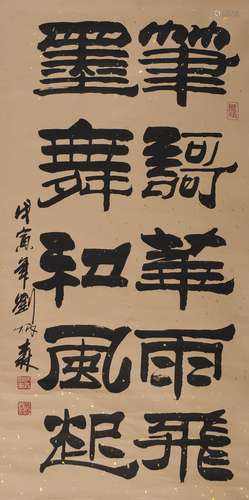 筆謌華雨飛
墨舞和風起
戊寅年劉炳森